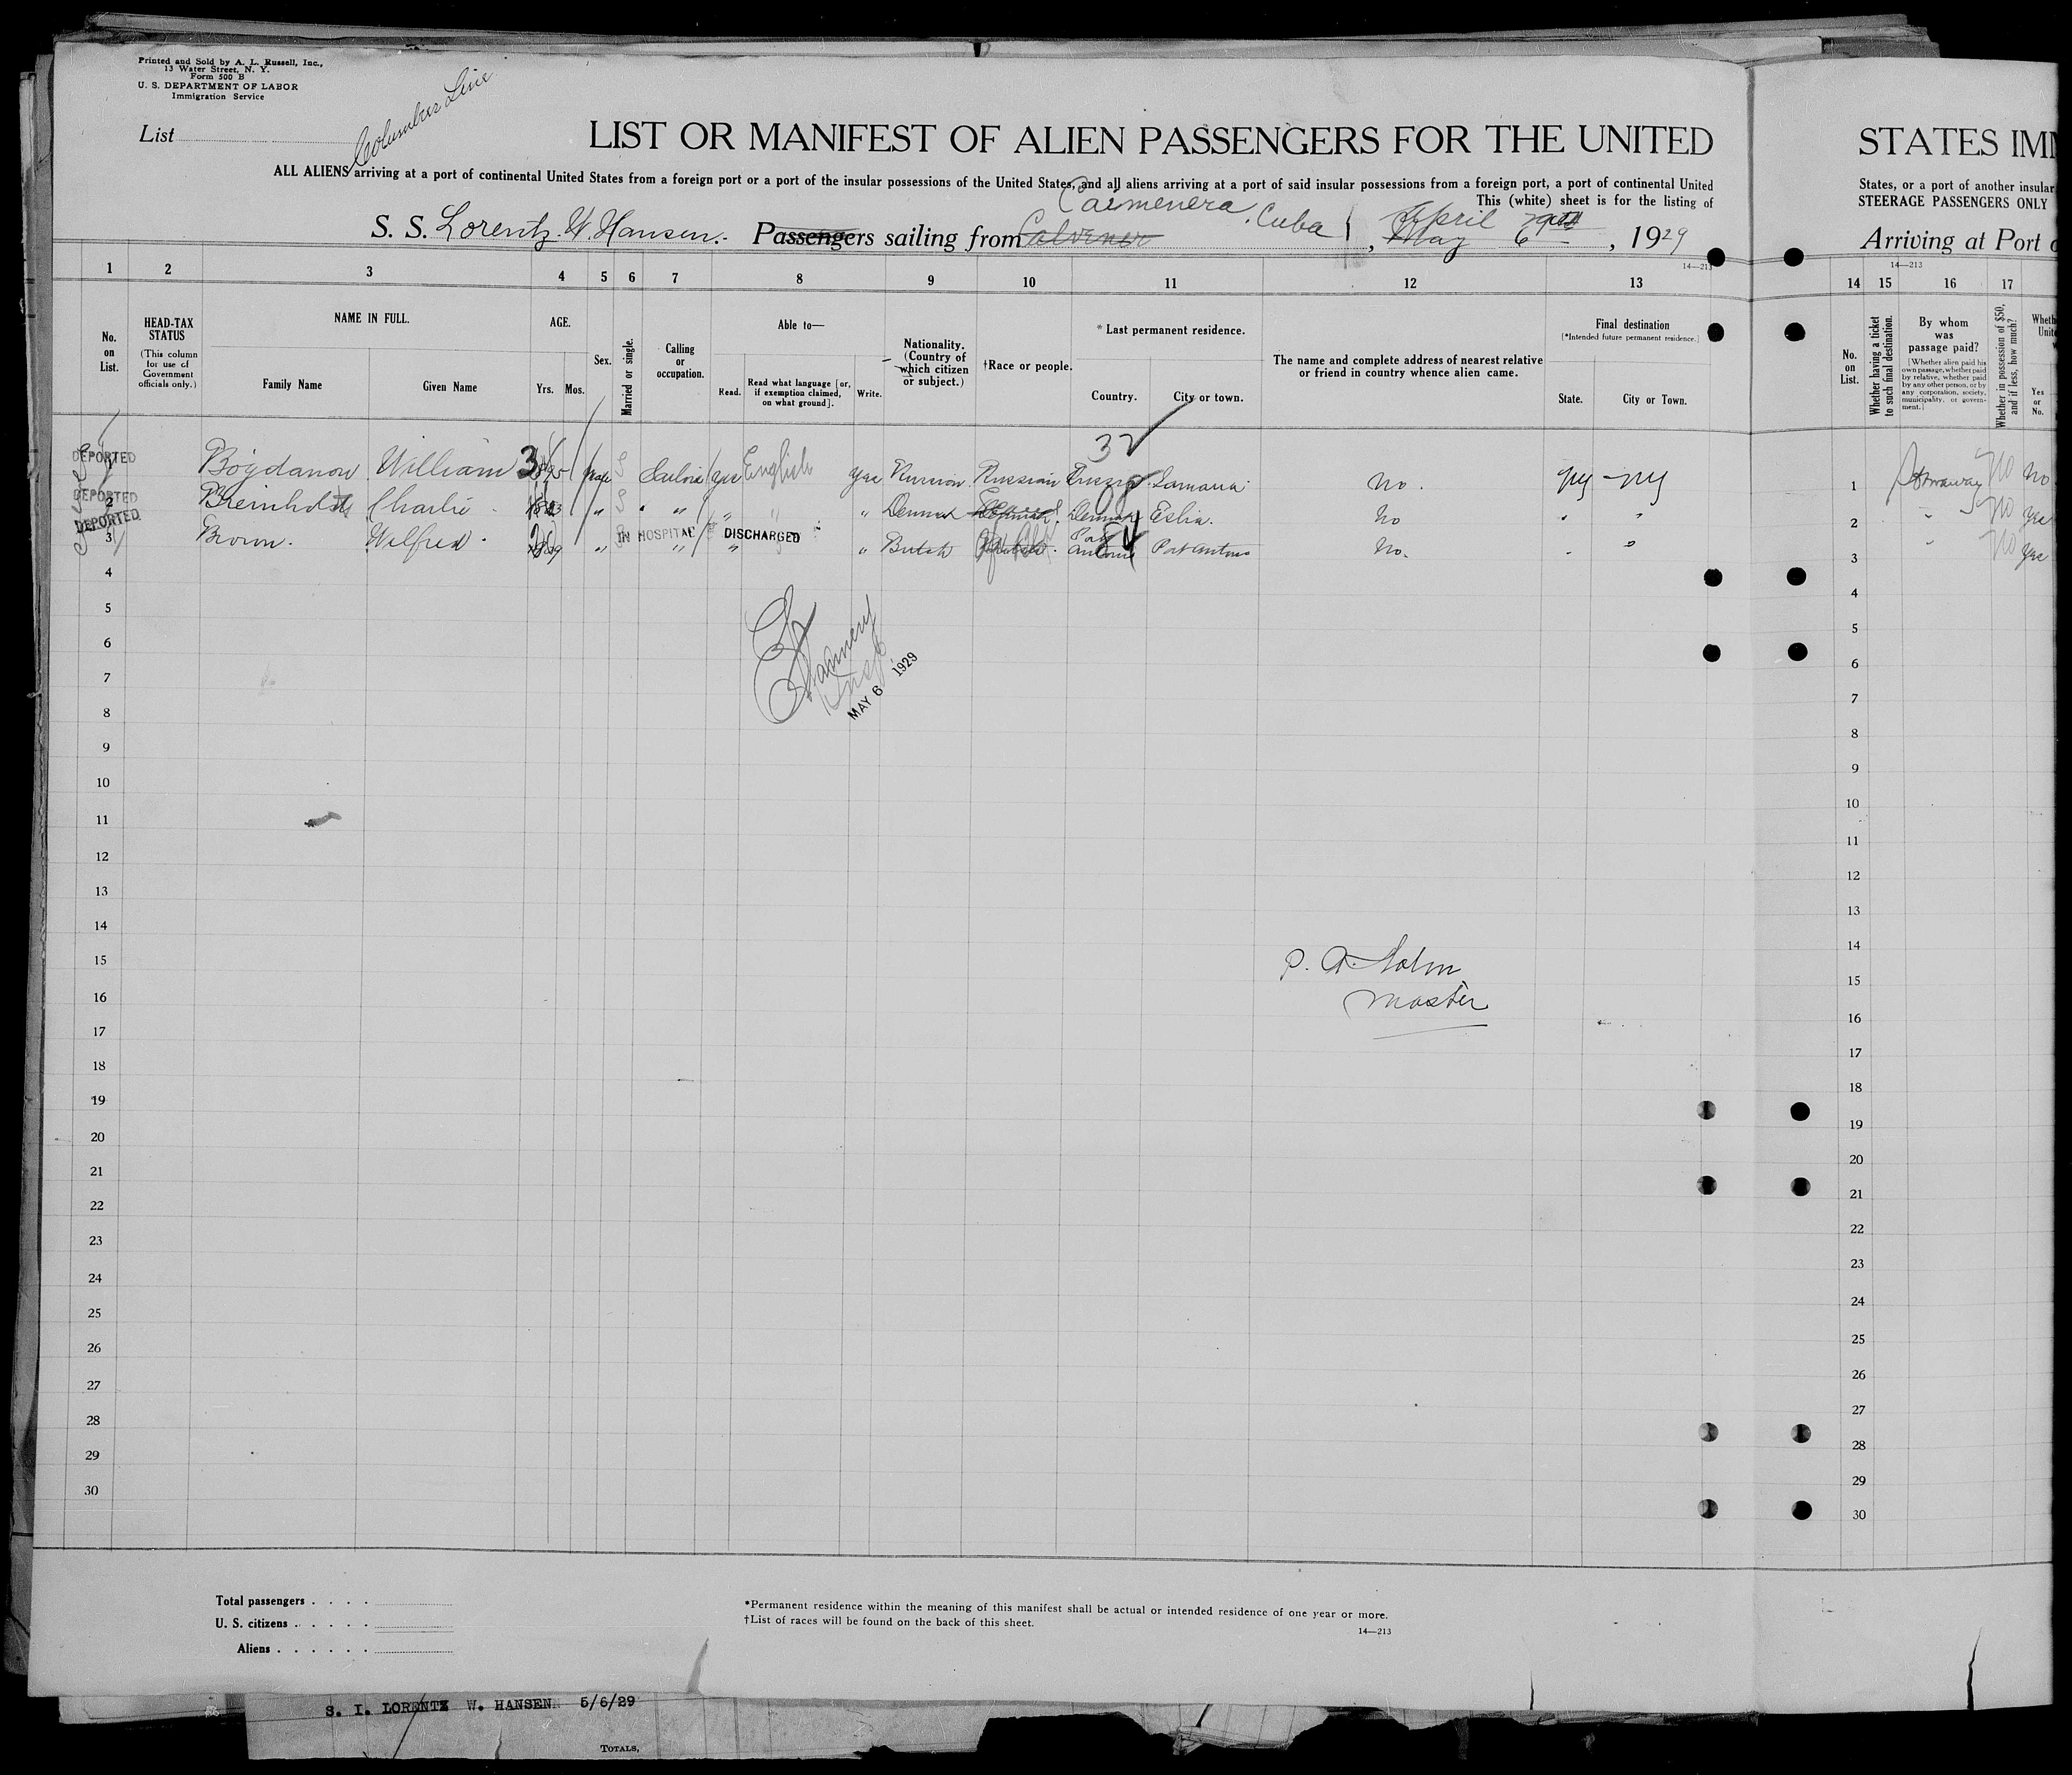 Printed and Sold by A. L. Russell, Inc.,
13 Water Street, N. Y.
Form 500 B
U. S. DEPARTMENT OF LABOR
Immigration Service
List
Columbus Line
LIST OR MANIFEST OF ALIEN PASSENGERS FOR THE UNITED
ALL ALIENS arriving at a port of continental United States from a foreign port or a port of the insular possessions of the United States, and all aliens arriving at a port of said insular possessions from a foreign port, a port of continental United
This (white) sheet is for the listing of
Caimenera, Cuba April
S. S. Lorentz W. Hansen. Passengers sailing from , May 6 , 1929
STATES IMM
States, or a port of another insular
STEERAGE PASSENGERS ONLY
Arriving at Port o
14—213
14—213
1 2 3 4 5 6 7 8 9 10 11 12 13
14 15 16 17
No. on List.
HEAD-TAX STATUS
(This column for use of Government officials only.)
NAME IN FULL.
Family Name Given Name
AGE.
Yrs. Mos.
Sex.
Married or single.
Calling or occupation.
Able to—
Read. Read what language [or, if exemption claimed, on what ground]. Write.
Nationality. (Country of which citizen or subject.)
†Race or people.
* Last permanent residence.
Country. City or town.
The name and complete address of nearest relative or friend in country whence alien came.
Final destination
[*Intended future permanent residence.]
State. City or Town.
No. on List.
Whether having a ticket to such final destination.
By whom was passage paid?
[Whether alien paid his own passage, whether paid by relative, whether paid by any other person, or by any corporation, society, municipality, or government.]
Whether in possession of $50, and if less, how much?
Yes or No.
32
DEPORTED Bogdanow William 3 Male S Sailor yes English yes Russian Russian Russia Samara No. NY NY
1 Stowaway No No
DEPORTED 2 Breinholdt Charlie " S " " " " Denmark Denmark No " "
2 " No Yes
DEPORTED 3 Brown. Wilfred " IN HOSPITAL DISCHARGED " British Port Antonio Port Antonio No. " "
3 " No Yes
4
5
6
7
8
9
10
11
12
13
14
15
16
17
18
19
20
21
22
23
24
25
26
27
28
29
30
4
5
6
7
8
9
10
11
12
13
14
15
16
17
18
19
20
21
22
23
24
25
26
27
28
29
30
Insp
MAY 6 1929
P. A. Holm
Master
Total passengers . . . .
U. S. citizens . . . . .
Aliens . . . . . .
*Permanent residence within the meaning of this manifest shall be actual or intended residence of one year or more.
†List of races will be found on the back of this sheet.
14—213
S. I. LORENTZ W. HANSEN 5/6/29
TOTALS,